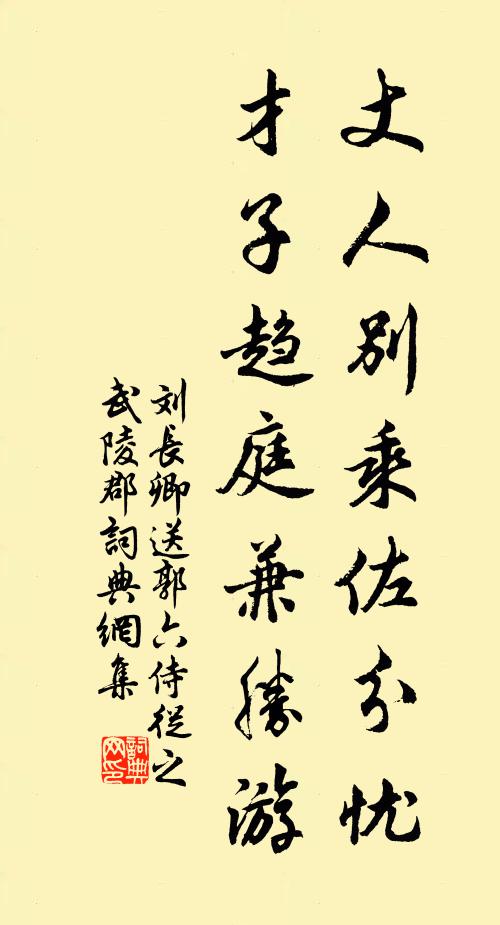 丈人別乘佐分忧
才子趋庭兼勝游
刘長卿送郭六侍從之
武陵郡詞典網集
詞典
网印